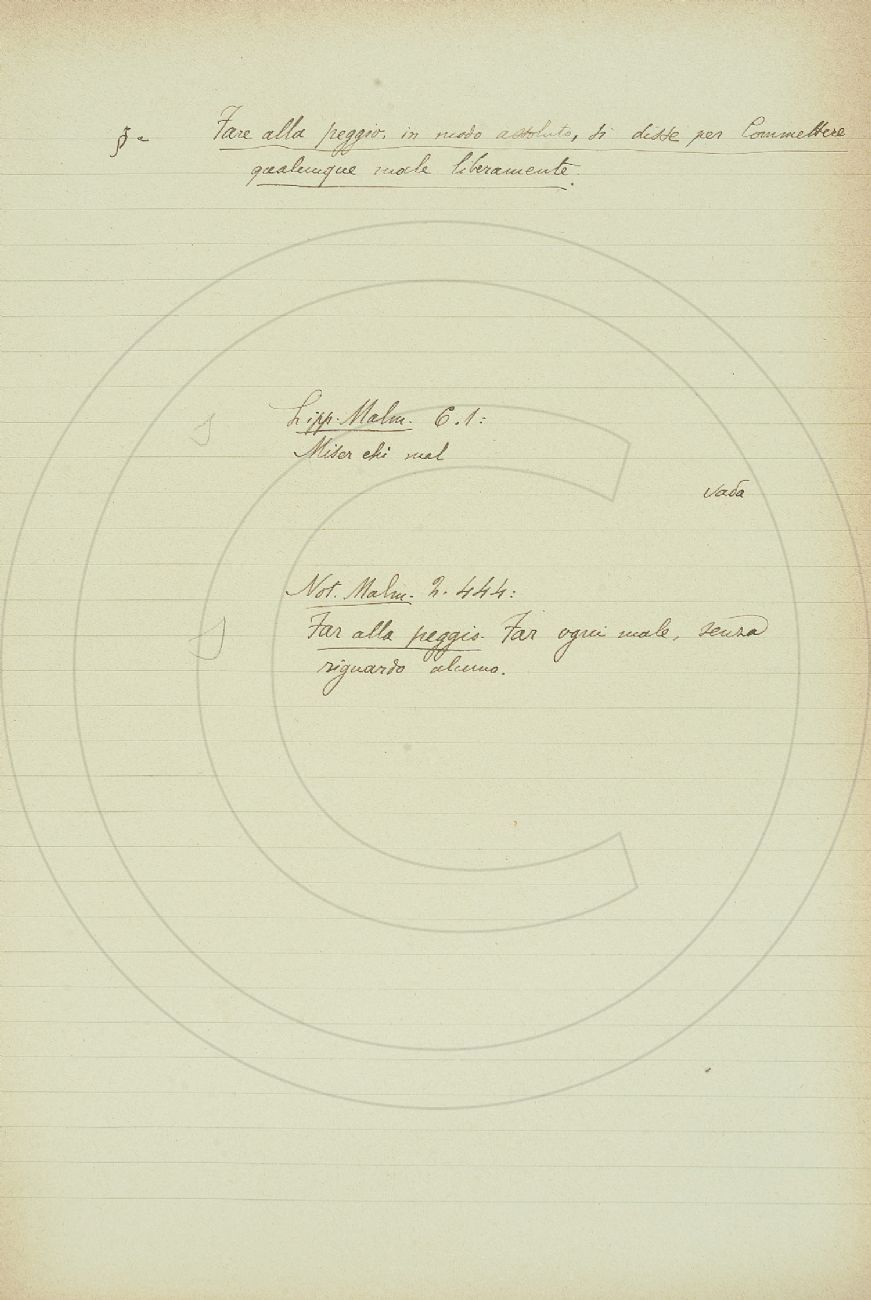 § - Fare alla peggio, in modo assoluto, si disse per Commettere
qualunque male liberamente.
Lipp. Malm. 6.1:
Miser chi mal
vada
Not. Malm. 2. 444:
Far alla peggio. Far ogni male, senza
riguardo alcuno.